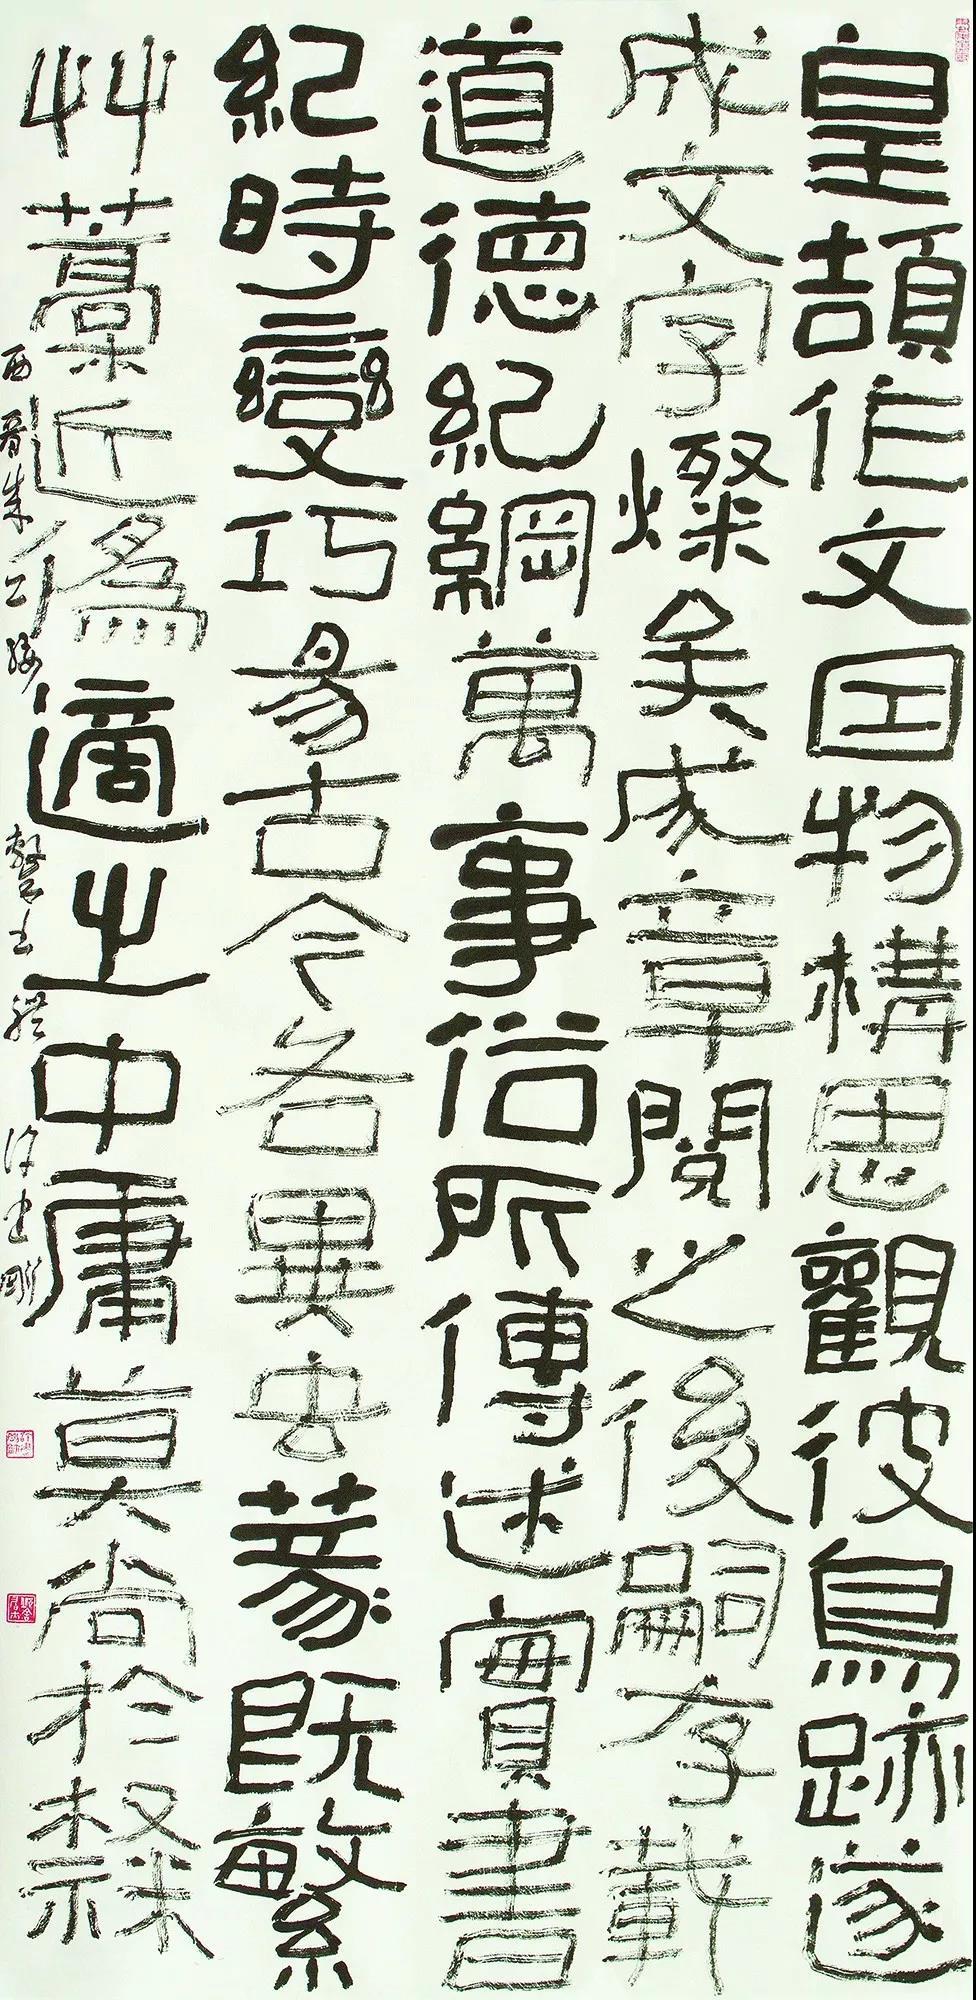 皇頡作文因物構思觀彼鳥跡遂
成文字燦矣成章閱之後嗣存載
道德紀綱萬事俗所傳述實書
紀時變巧易古今各異虫篆既繁
艸藁近偽適之中庸莫尚於隸
西晉成公綏隸書體許建剛